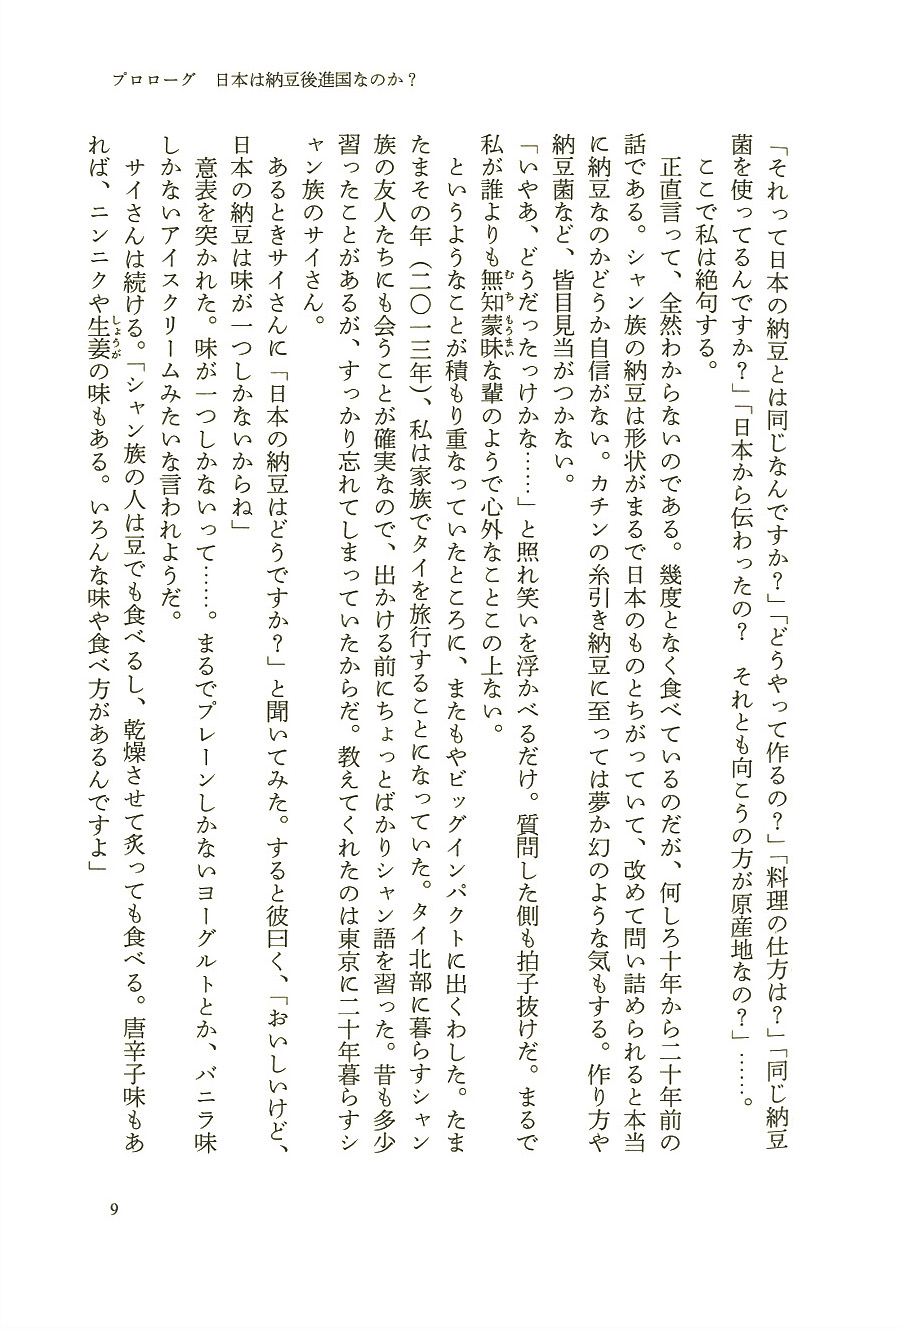 プロローグ　日本は納豆後進国なのか？
「それって日本の納豆とは同じなんですか？」「どうやって作るの？」「料理の仕方は？」「同じ納豆
菌を使ってるんですか？」「日本から伝わったの？　それとも向こうの方が原産地なの？」……。
ここで私は絶句する。
正直言って、全然わからないのである。幾度となく食べているのだが、何しろ十年から二十年前の
話である。シャン族の納豆は形状がまるで日本のものとちがっていて、改めて問い詰められると本当
に納豆なのかどうか自信がない。カチンの糸引き納豆に至っては夢か幻のような気もする。作り方や
納豆菌など、皆目見当がつかない。
「いやあ、どうだったっけかな……」と照れ笑いを浮かべるだけ。質問した側も拍子抜けだ。まるで
私が誰よりも無知蒙昧な輩のようで心外なことこの上ない。
というようなことが積もり重なっていたところに、またもやビッグインパクトに出くわした。たま
たまその年（二〇一三年）、私は家族でタイを旅行することになっていた。タイ北部に暮らすシャン
族の友人たちにも会うことが確実なので、出かける前にちょっとばかりシャン語を習った。昔も多少
習ったことがあるが、すっかり忘れてしまっていたからだ。教えてくれたのは東京に二十年暮らすシ
ャン族のサイさん。
あるときサイさんに「日本の納豆はどうですか？」と聞いてみた。すると彼曰く、「おいしいけど、
日本の納豆は味が一つしかないからね」
意表を突かれた。味が一つしかないって……。まるでプレーンしかないヨーグルトとか、バニラ味
しかないアイスクリームみたいな言われようだ。
サイさんは続ける。「シャン族の人は豆でも食べるし、乾燥させて炙っても食べる。唐辛子味もあ
れば、ニンニクや生姜の味もある。いろんな味や食べ方があるんですよ」
9